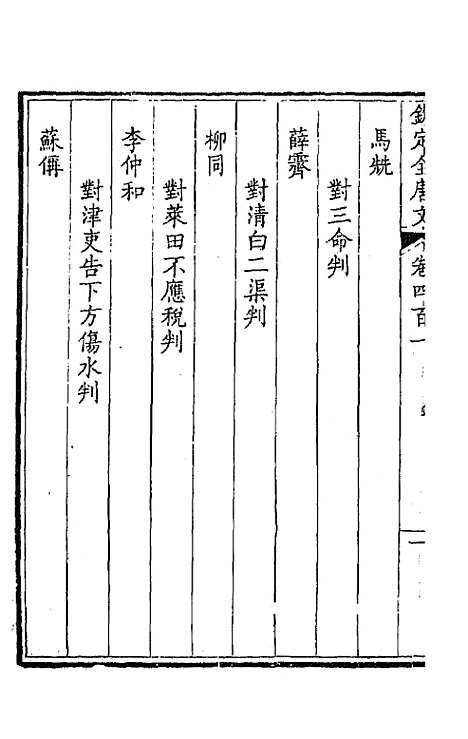 欽定全唐文 卷四百一
馬兟
對三命判
薛霽
對清白二渠判
柳同
對萊田不應稅判
李仲和
對津吏告下方傷水判
蘇倛